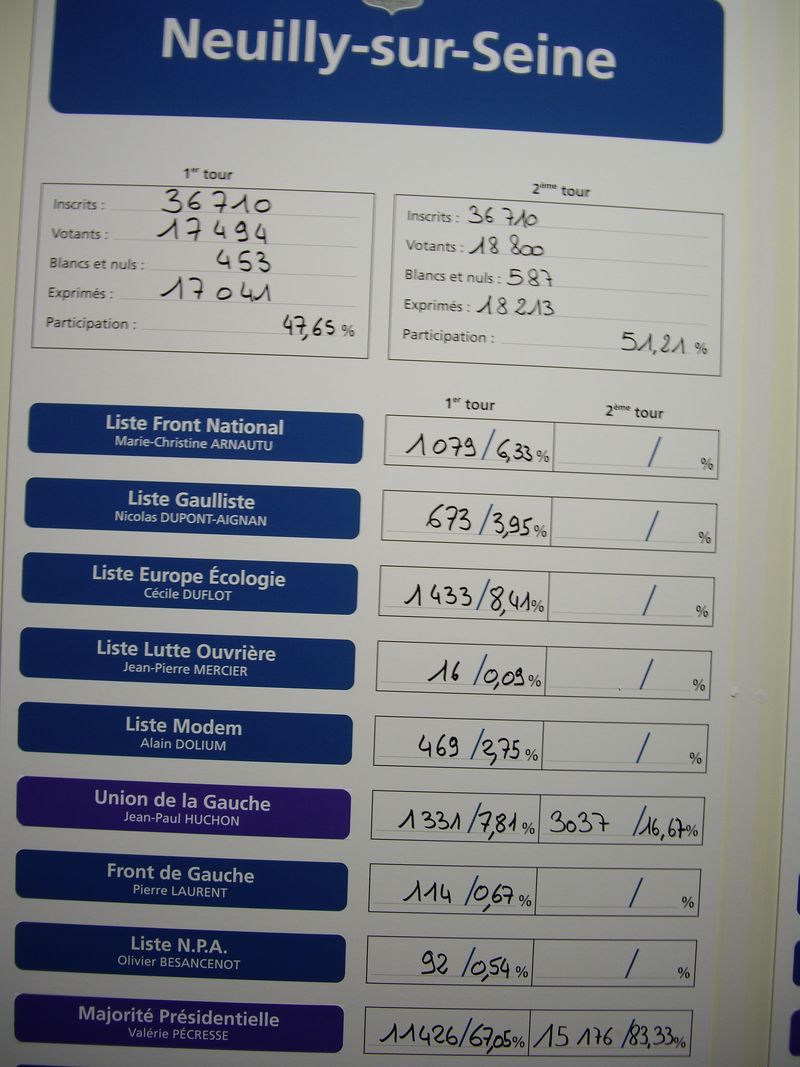 Neuilly-sur-Seine
1er tour
Inscrits : 36 710
Votants : 17 494
Blancs et nuls : 453
Exprimés : 17 041
Participation : 47,65 %
2ème tour
Inscrits : 36 710
Votants : 18 800
Blancs et nuls : 587
Exprimés : 18 213
Participation : 51,21 %
1er tour 2ème tour
Liste Front National
Marie-Christine ARNAUTU
1 079 / 6,33 % / %
Liste Gaulliste
Nicolas DUPONT-AIGNAN
673 / 3,95 % / %
Liste Europe Écologie
Cécile DUFLOT
1 433 / 8,41 % / %
Liste Lutte Ouvrière
Jean-Pierre MERCIER
16 / 0,09 % / %
Liste Modem
Alain DOLIUM
469 / 2,75 % / %
Union de la Gauche
Jean-Paul HUCHON
1 331 / 7,81 % 3037 / 16,67 %
Front de Gauche
Pierre LAURENT
114 / 0,67 % / %
Liste N.P.A.
Olivier BESANCENOT
92 / 0,54 % / %
Majorité Présidentielle
Valérie PÉCRESSE
11426 / 67,05 % 15 176 / 83,33 %